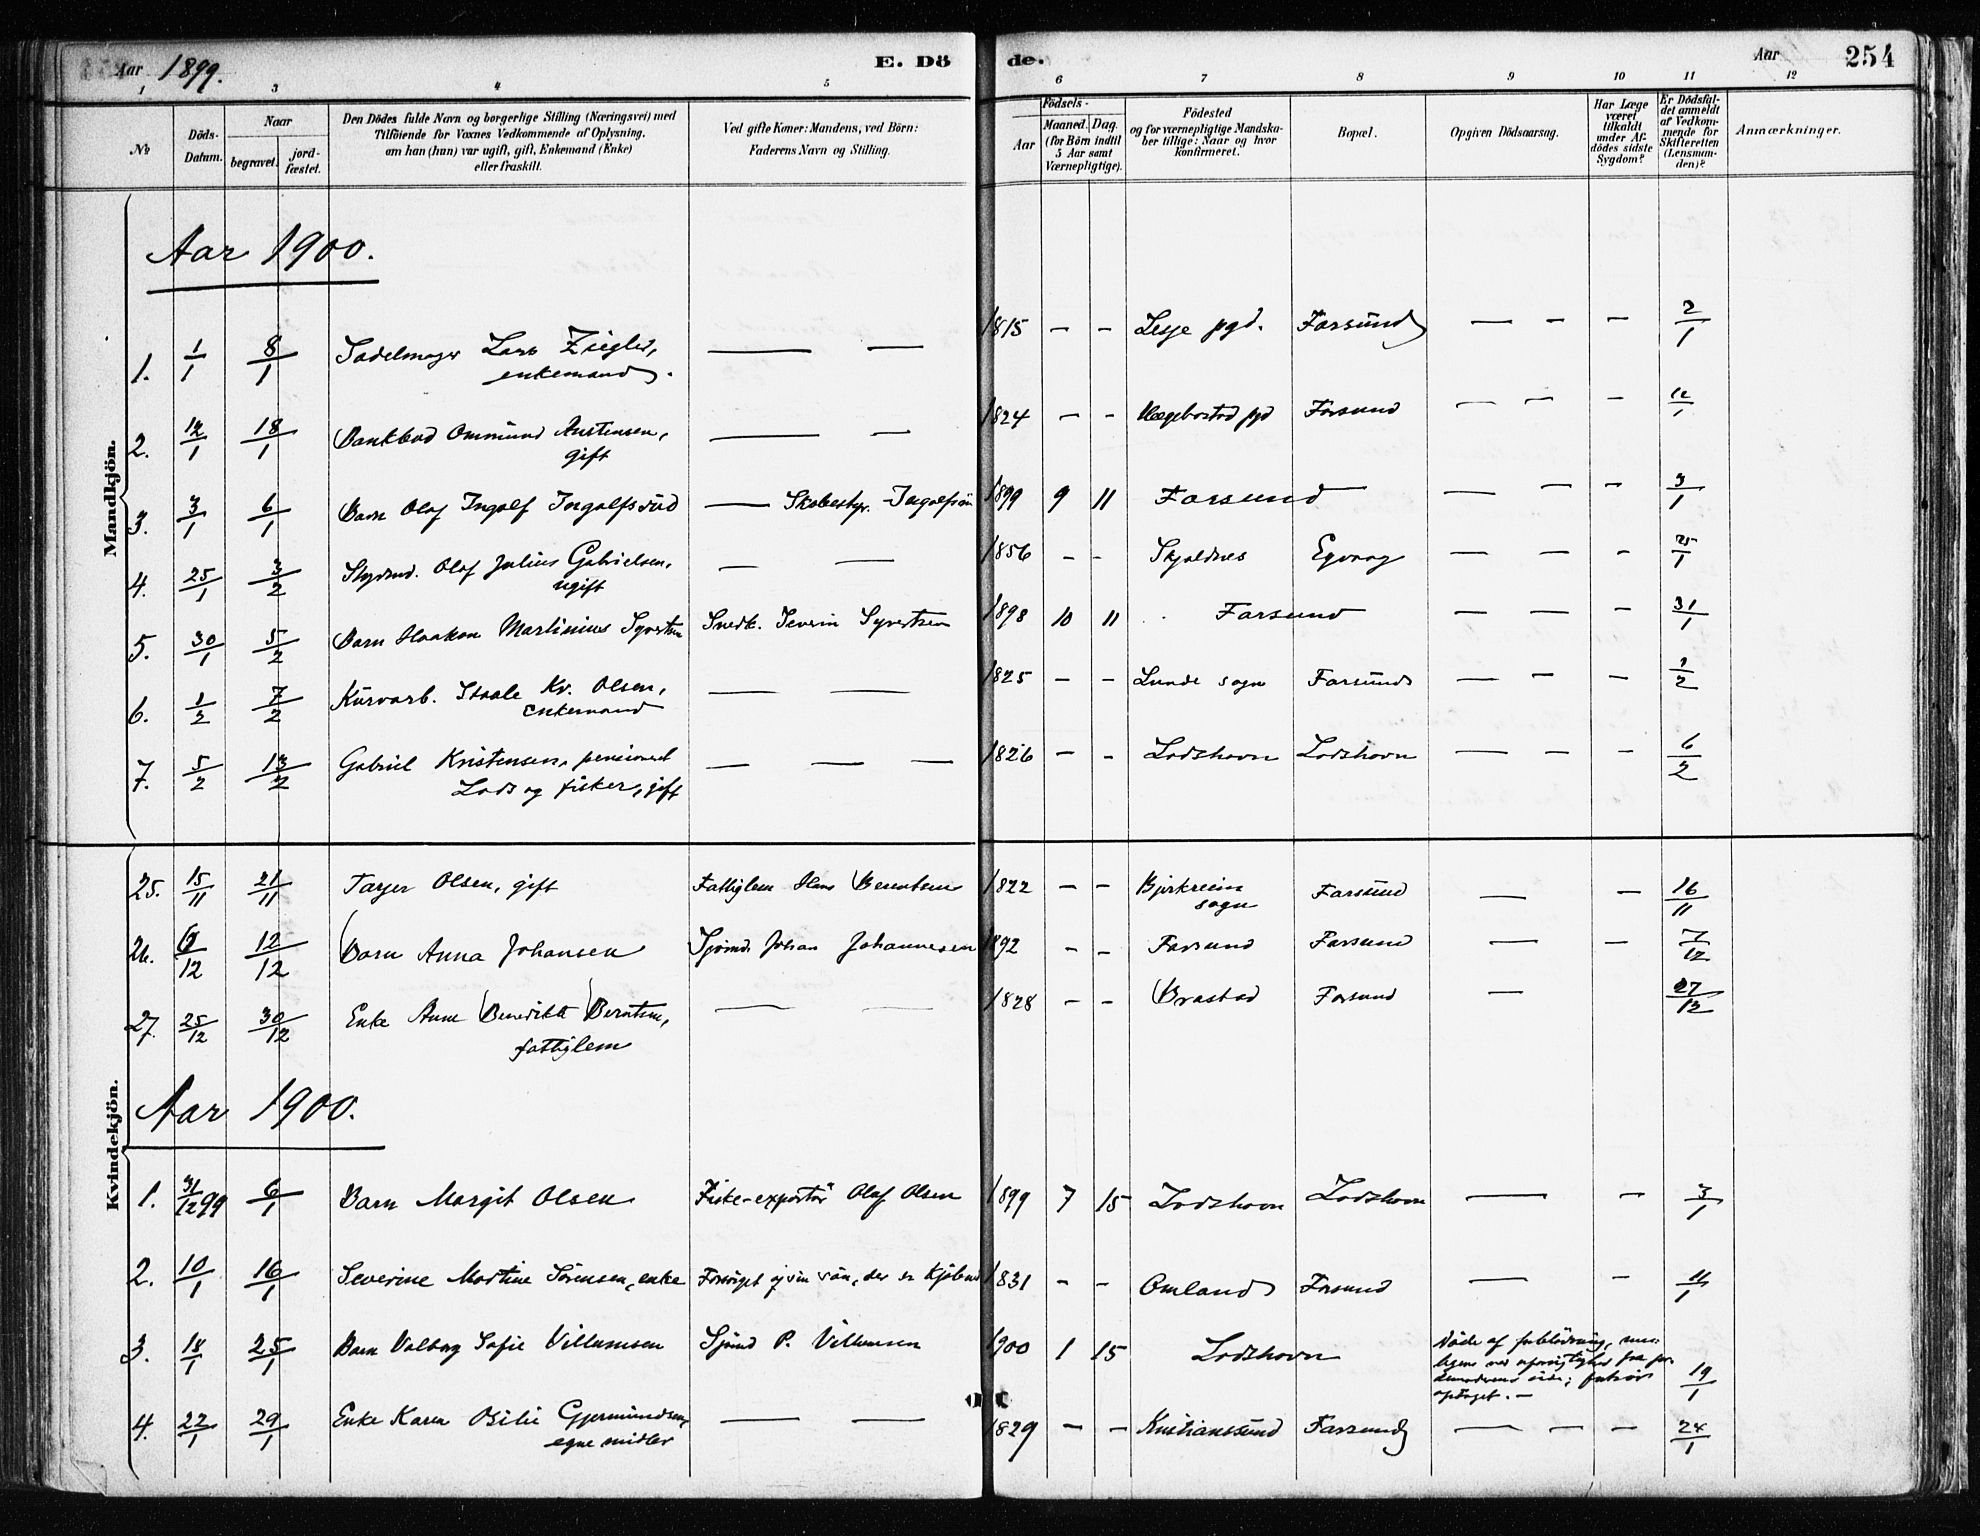 Aar 1899. E. Dö de. Aar 254
1 3 4 5 6 7 8 9 10 11 12
No
Döds-Datum.
Naar
begravet.
jord-fæstet.
Den Dödes fulde Navn og borgerlige Stilling (Næringsvei) med
Tilföiende for Voxnes Vedkommende af Oplysning,
om han (hun) var ugift, gift, Enkemand (Enke)
eller fraskilt.
Ved gifte Koner: Mandens, ved Börn:
Faderens Navn og Stilling.
Födsels-
Aar
Maaned. Dag.
(for Börn indtil
5 Aar samt
Værnepligtige).
Födested
og for værnepligtige Mandska-
ber tillige: Naar og hvor
konfirmeret.
Bopæl.
Opgiven Dödsaarsag.
Har Læge
været
tilkaldt
under Af-
dödes sidste
Sygdom?
Er Dödsfal-
det anmeldt
af Vedkom-
mende for
Skifteretten
(Lensman-
den)?
Anmærkninger.
Mandkjön.
Aar 1900.
1. 1/1 8/1 Sadelmager Lars Ziegler, — — 1815 — — Lesje pgd. Farsund — — — 2/1
enkemand.
2. 12/1 18/1 Bankbud Ommund Austensen, — — 1824 — — Hægebostad pgd Farsund — — — 12/1
gift
3. 3/1 6/1 Barn Olaf Ingolf Ingolfsrud — Skobestyr. Ingolfsrud 1899 9 11 Farsund — — — — 3/1
4. 25/1 3/2 Styrmd. Olaf Julius Gabrielsen, — — 1856 — — Skjoldnes Egvaag — — — 25/1
ugift
5. 30/1 5/2 Barn Haakon Martinius Syvertsen Snedk. Severin Syvertsen 1898 10 11 Farsund — — — 31/1
6. 1/2 7/2 Kurvarb. Staale Kv. Olsen, — — 1825 — — Lunde sogn Farsund — — — 1/2
Enkemand
7. 5/2 13/2 Gabriel Kristensen, pensioneret — — — 1826 — — Lodshavn Lodshavn — — — 6/2
Lods og fisker, gift
Kvindekjön.
25. 15/11 21/11 Tager Olsen, gift Fattiglem Hans Berentsen 1822 — — Bjerkreim Farsund — — 16/11
sogn
26. 6/12 12/12 Barn Anna Johansen Sjømd. Johan Johannesen 1892 — — Farsund Farsund — — 7/12
27. 25/12 30/12 Enke Anne Benedikte Berntsen, — — 1828 — — Brastad Farsund — 27/12
fattiglem
Aar 1900.
1. 31/12 99 6/1 Barn Margit Olsen Fiske-exportør Olaf Olsen 1899 7 15 Lodshavn Lodshavn — — 3/1
2. 10/1 16/1 Severine Martine Sörensen, enke Forsörget af sin sön, der er Kjöbmd 1831 — — Omland Farsund — — 11/1
3. 18/1 25/1 Barn Valborg Sofie Villumsen Sjömd P. Villumsen 1900 1 15 Lodshavn Döde af forblödning,
ved uforsigtighed fra
side; forhör
optaget. — 19/1
4. 22/1 29/1 Enke Karen Otilie Gjermundsen, — — 1829 — — Kristianssund Farsund — — — 24/1
egne midler